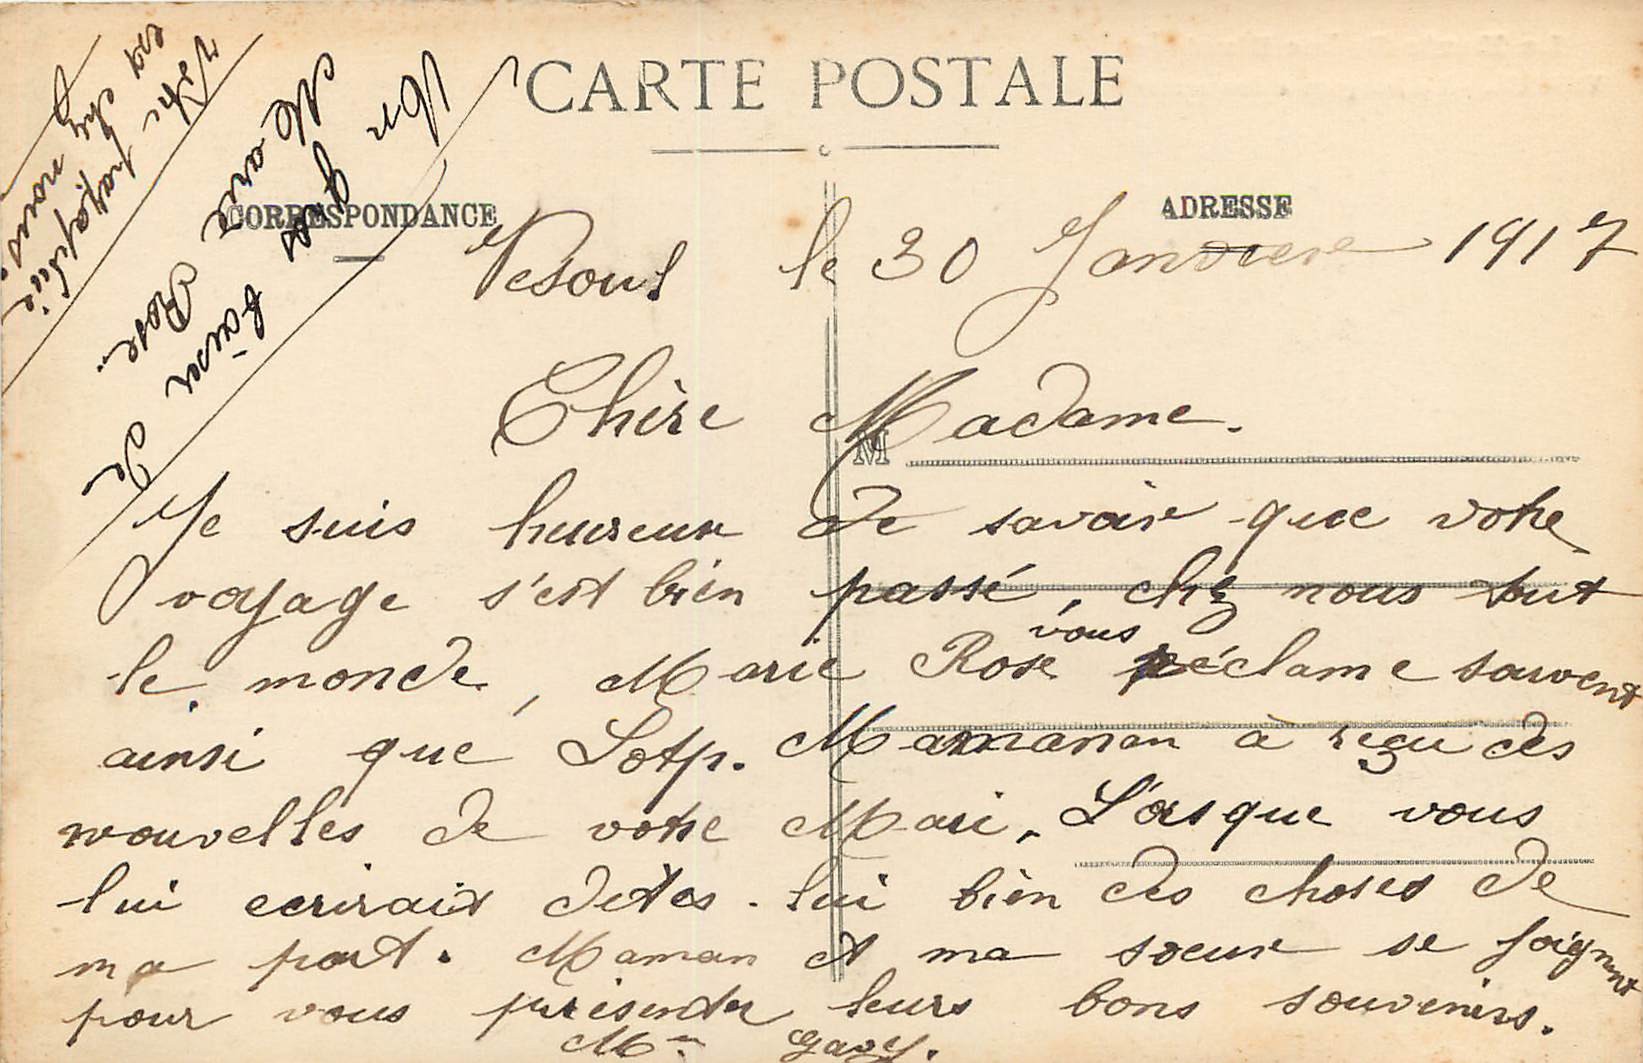 CARTE POSTALE
CORRESPONDANCE
ADRESSE
Vesoul le 30 Janvier 1917
Chère Madame.
M
Je suis heureux de savoir que votre
voyage s'est bien passé, chez nous tout
le monde, Marie Rose vous réclame souvent
ainsi que Maman à reçu des
nouvelles de votre Mari, Lorsque vous
lui ecrirais dites-lui bien des choses de
ma part. Maman et ma soeur se joignent
pour vous présenter leurs bons souvenirs.
Un gros baiser de
Marie Rose.
Votre
est chez nous.